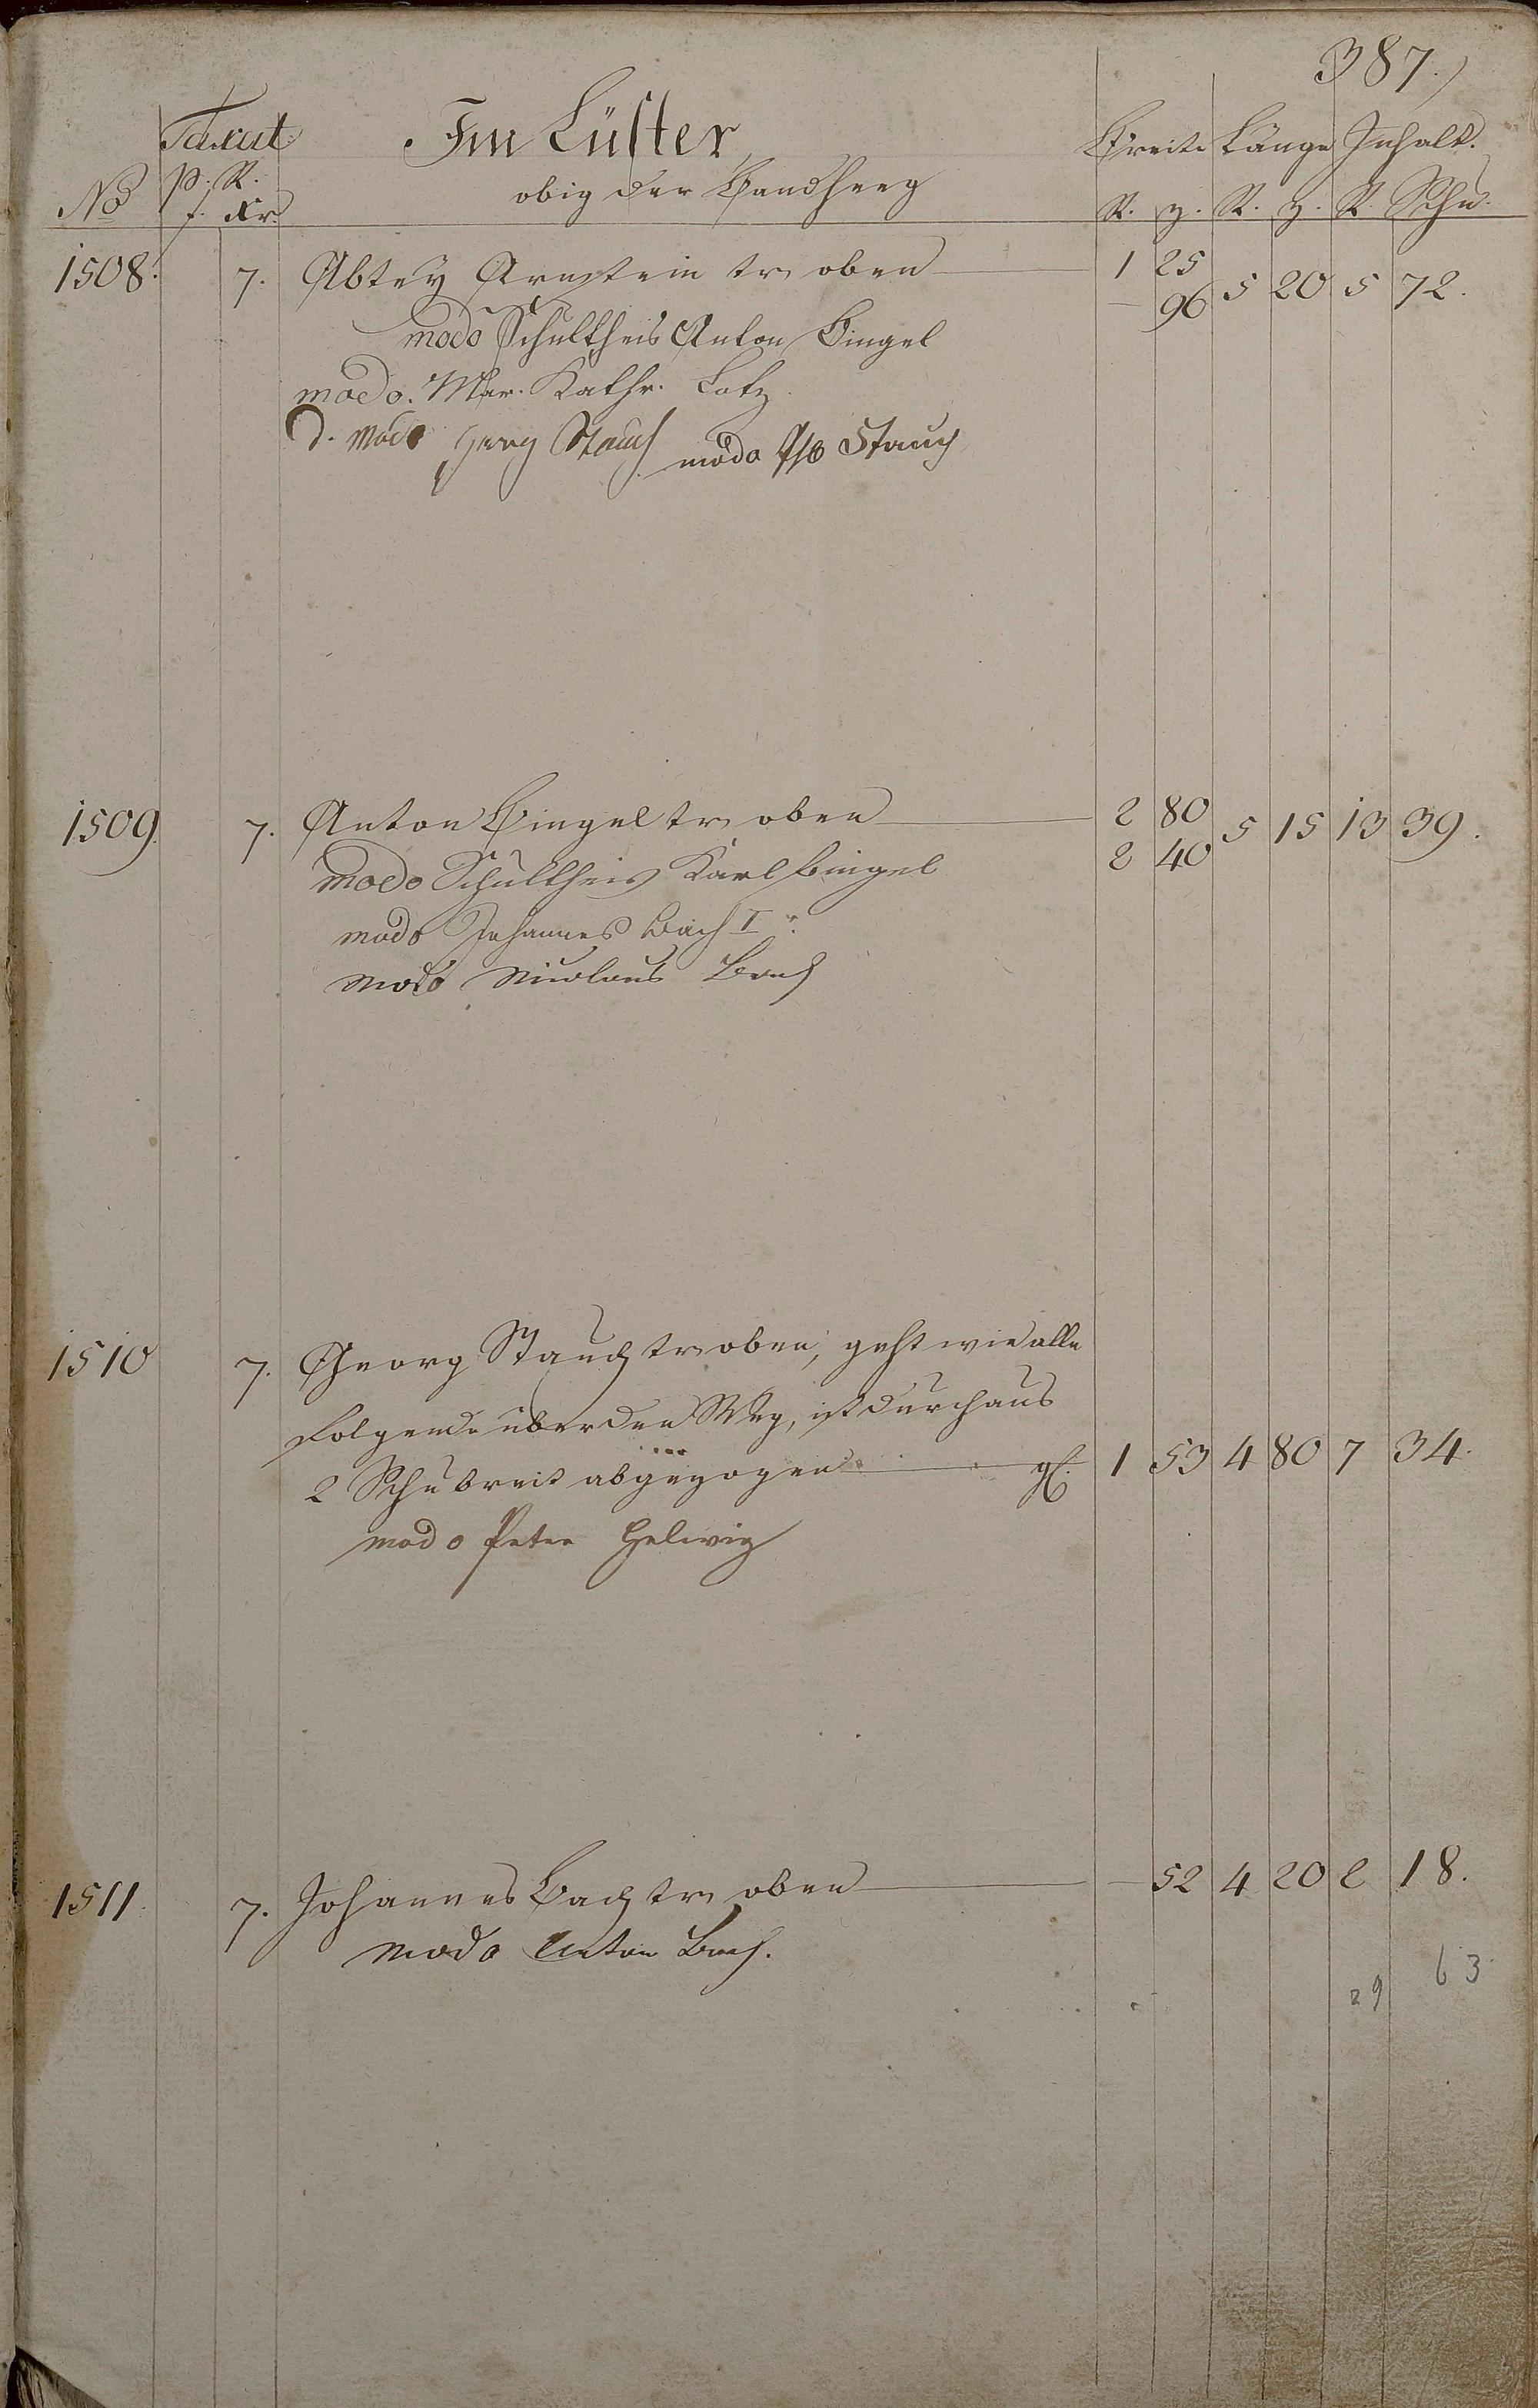 387.)
Taxat. Im Lüster Breite Länge Inhalt.
No p. R. obig der Bandheeg R. z. R. z. R. Schu.
f. Xr.
1508. 7. Abtey Arnstein tr oben 1 25 5 20 5 72.
— 96
modo Schultheis Anton Bingel
modo. Mar. Kathr. Lotz.
d. modo Georg Stauch modo Stauch
1509. 7. Anton Bingel tr oben 2 80 5 15 13 39.
2 40
modo Schultheis Karl Bingel
modo Johannes Bach Ir.
modo Nicolaus Bach
1510 7. Georg Stauch tr oben, geht wie alle
folgende über den Weg, ist durchaus
2 Schu breit abgezogen gl. 1 53 4 80 7 34.
modo Peter Helwig
1511. 7. Johannes Bach tr oben — 52 4 20 2 18.
modo Anton Bach.
29 63